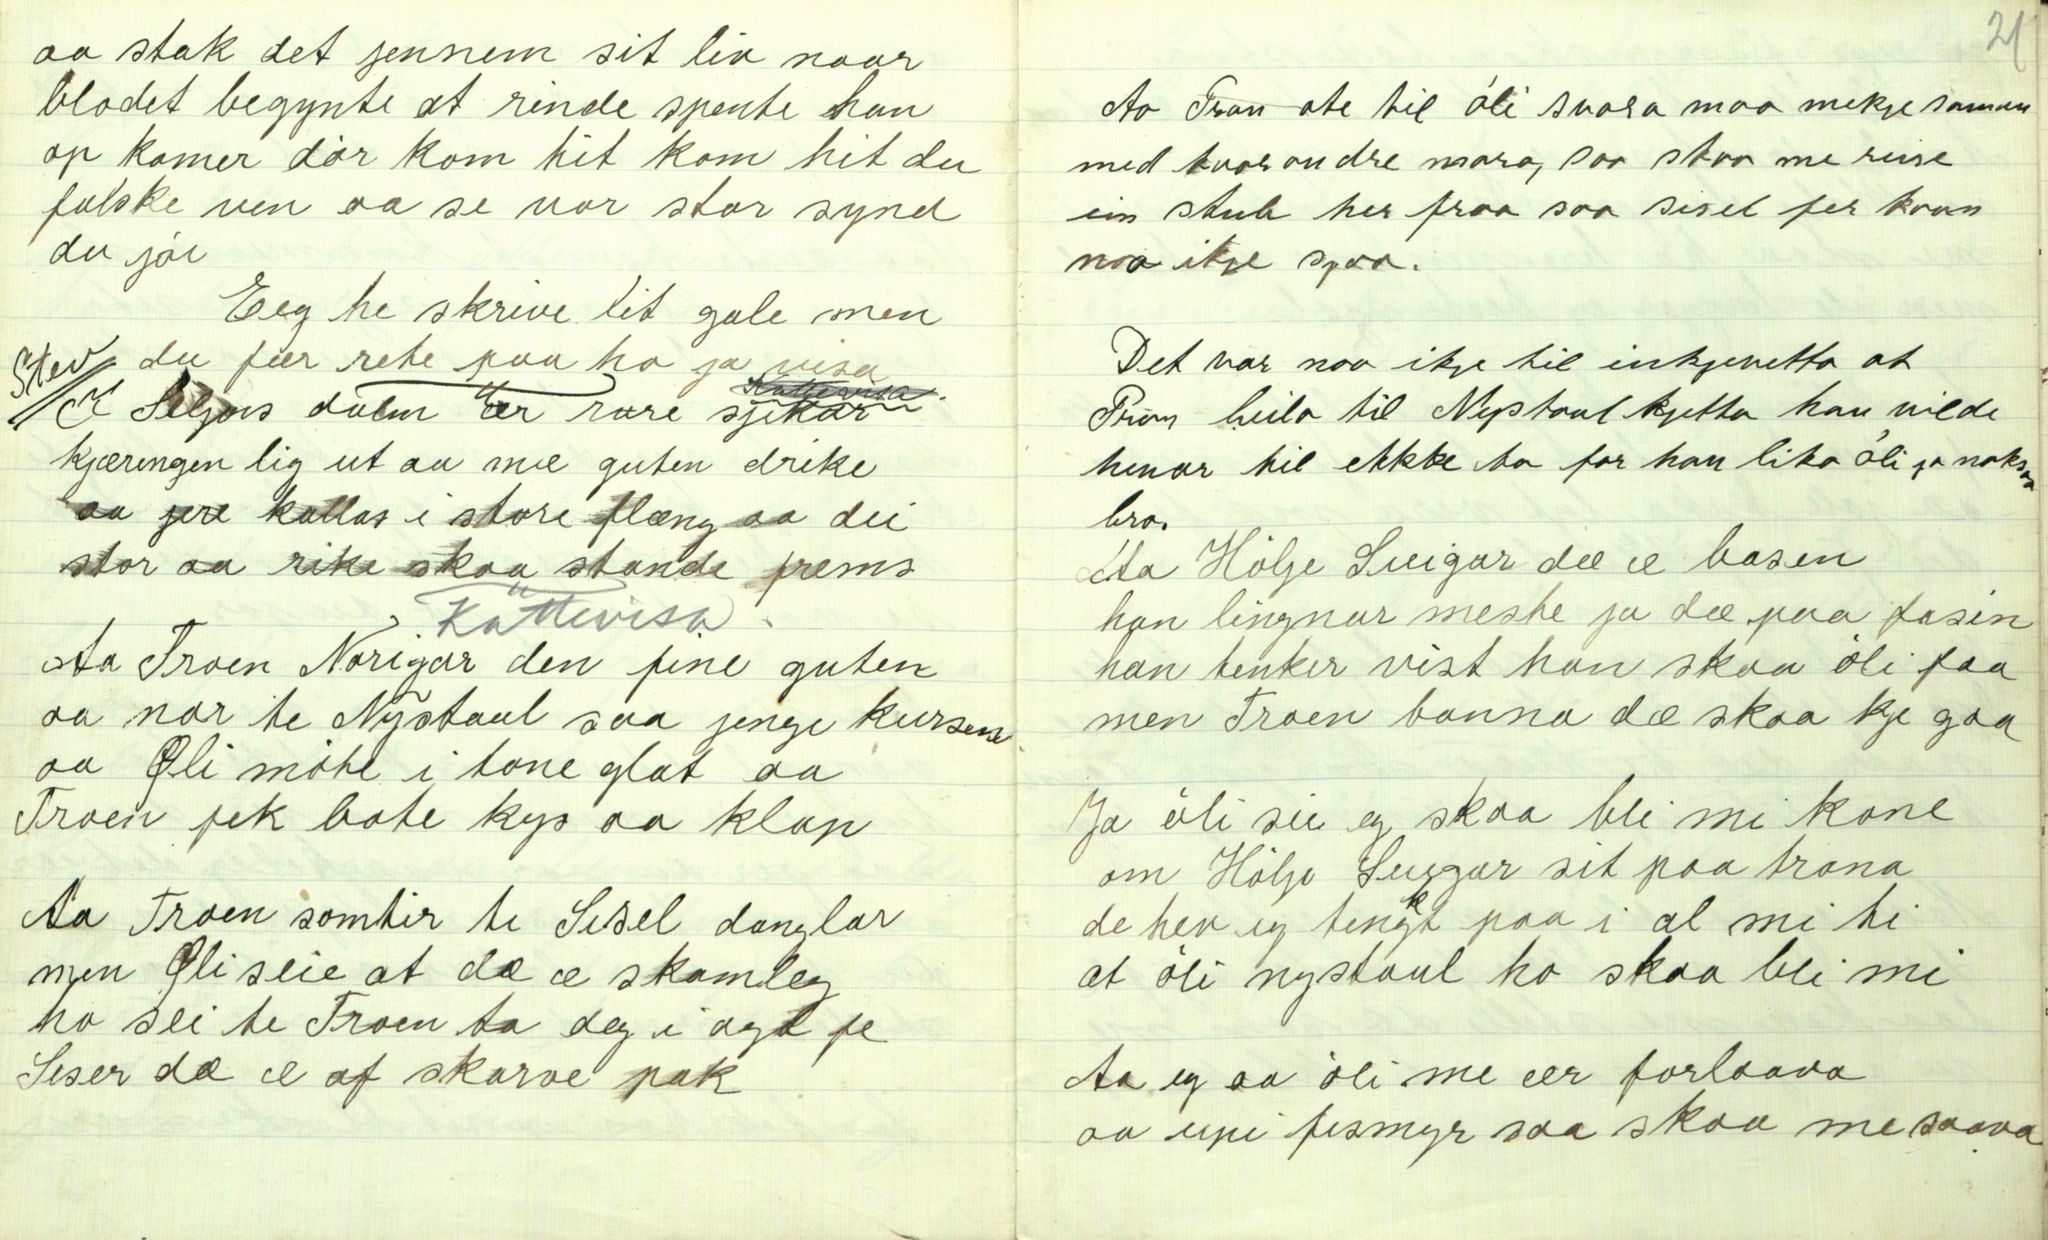 aa stak det jennem sit liv naar
blodet begynte at rinde spente han
op kamer dör kom hit kom hit du
falske ven aa se vor stor synd
du jör
Eeg he skrive lit gale men
du fær rete paa ho ja visa
Stev
I Seljors dalen ær rare sjikar
Kattevisa
kjæringen lig ut aa mæ guten drike
aa jere kallas i store flæng aa dei
stor aa rike skaa stande frems
Kattevisa.
Aa Troen Norigar den fine guten
aa nar te Nystaul saa jenge kursene
aa Öli möte i tone glat aa
Troen fek bote kys aa klap
Aa Troen somtir te Sisel danglar
men Öli seie at dæ æ skamleg
ho sei te Troen ta deg i agt fe
Seser dæ æ af skarve pak
21
Ao Tron ate til öli svara maa mekje saman
med kvarandre mara, saa staa me reise
ein stub her fraa saa sisel fer kaan
noo itje spaa.
Det var noo itje til inkjevetta at
Tron beila til Nystaul kjetta han vilde
henar til ekkte ta for han lika öli ja noksaa
bra.
Aa Hölje Sveigar dæ æ basen
han lingnar meste ja dæ paa fasin
han tenker vist han skaa öli faa
men Troen banna dæ skaa kje gaa
Ja öli sie eg skaa bli mi kone
om Hölje Sveggar sit paa trona
de hev eg tengkt paa i al mi ti
at öli nystaul ho skaa bli mi
Aa eg aa öli me ær forlaava
aa upi fesmyr saa skaa me saava